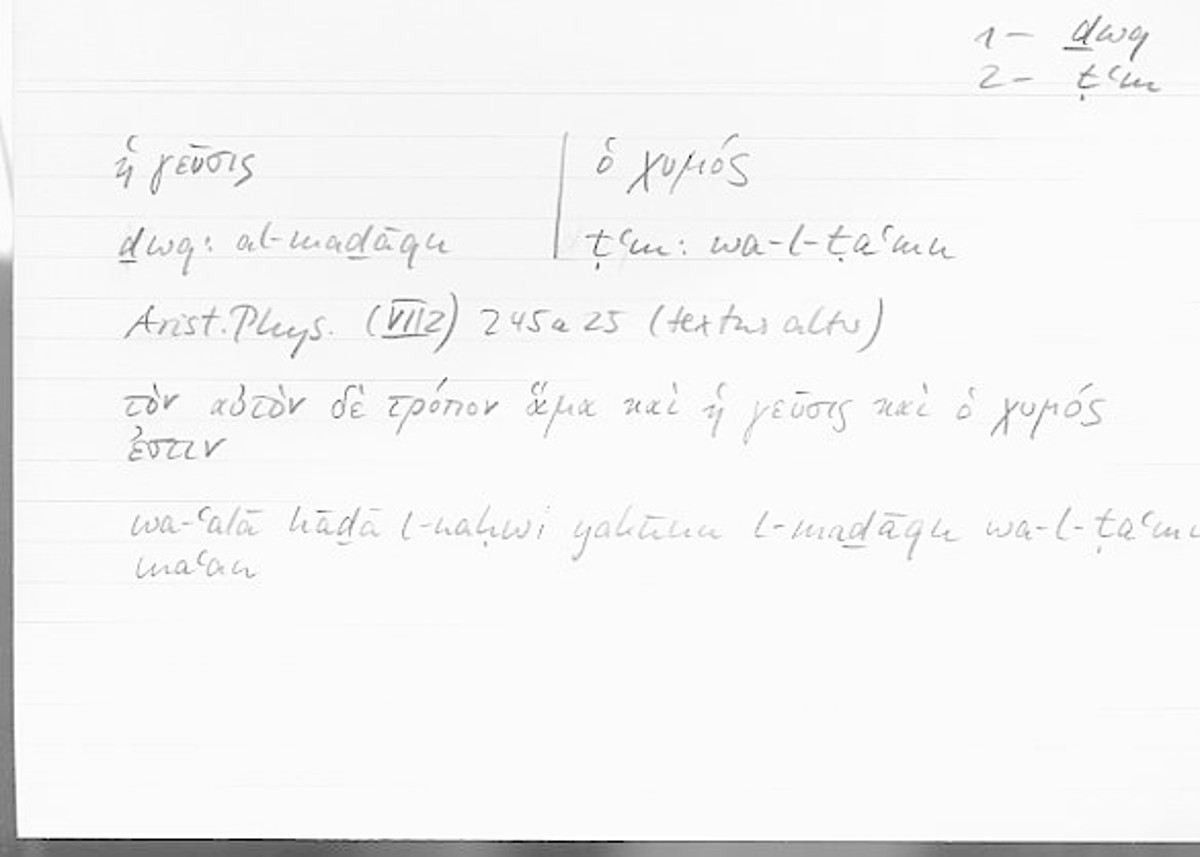 1 – ḏwq
2 – ṭʿm
ἡ γεῦσις | ὁ χυμός
ḏwq: al-maḏāqu | ṭʿm: wa-l-ṭaʿmu
Arist. Phys. (VII2) 245a25 (textus alter)
τὸν αὐτὸν δὲ τρόπον ἅμα καὶ ἡ γεῦσις καὶ ὁ χυμός
ἐστιν
wa-ʿalā hāḏā l-naḥwi yakūnu l-maḏāqu wa-l-ṭaʿmu
maʿan